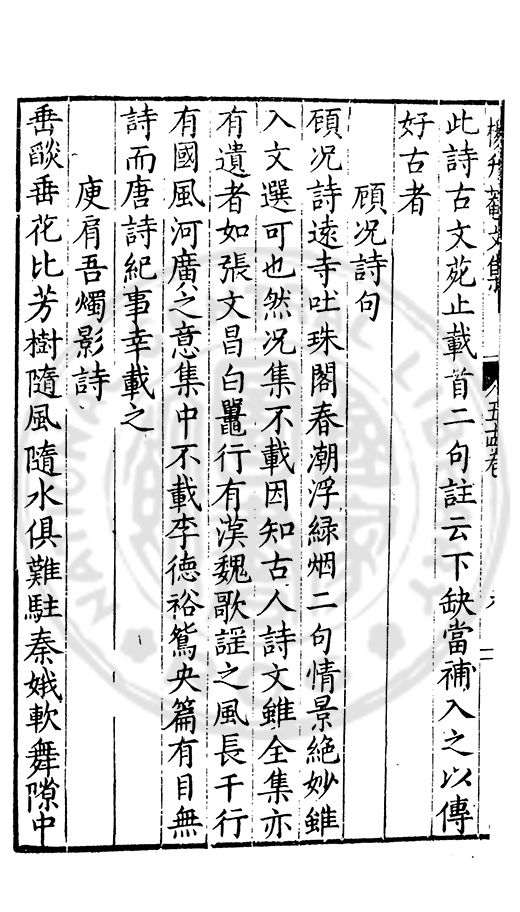 楊升菴文集
五十四卷
此詩古文苑止載首二句註云下缺當補入之以傳
好古者
顧况詩句
顧况詩遠寺吐珠閣春潮浮緑烟二句情景絶妙雖
入文選可也然况集不載因知古人詩文雖全集亦
有遺者如張文昌白鼉行有漢魏歌謡之風長干行
有國風河廣之意集中不載李德裕鴛央篇有目無
詩而唐詩紀事幸載之
庾肩吾燭影詩
垂燄垂花比芳樹隨風隨水俱難駐秦娥軟舞隙中